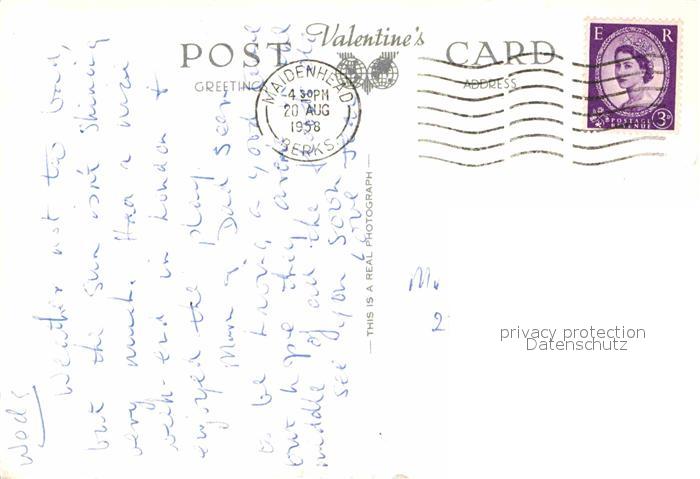 POST Valentine's CARD
GREETING
ADDRESS
MAIDENHEAD
4 30PM
20 AUG
1958
BERKS.
E R
POSTAGE
REVENUE
3D
THIS IS A REAL PHOTOGRAPH
Weds
Weather not too bad,
but the sun isn't shining
very much. Had a nice
week-end in London &
enjoyed the play.
Mum & Dad seem
to be having a good time
but hope they aren't
middle of all the
See you soon
Love
2
privacy protection
Datenschutz